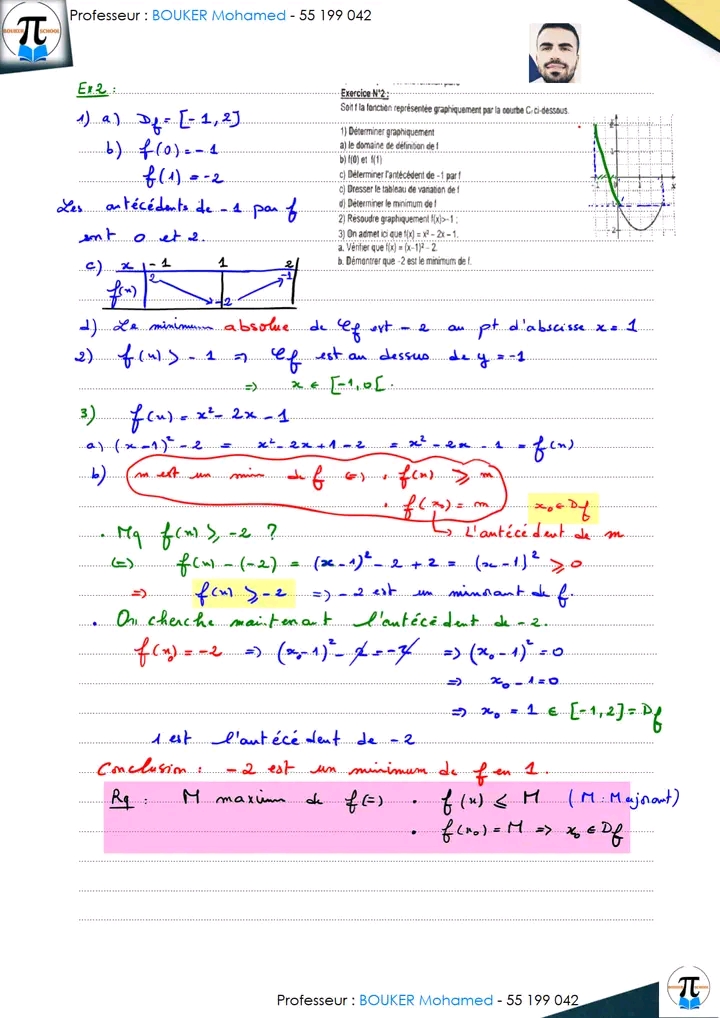 Professeur : BOUKER Mohamed - 55 199 042
BOUKER SCHOOL
Ex.2 :
1) a) Df = [-1, 2]
b) f(0) = -1
f(1) = -2
Les antécédents de -1 par f
sont 0 et 2.
c) x | -1 1 2
f(x) 2 -2 -1
Exercice N°2 :
Soit f la fonction représentée graphiquement par la courbe C ci-dessous.
1) Déterminer graphiquement
a) le domaine de définition de f
b) f(0) et f(1)
c) Déterminer l'antécédent de -1 par f
c) Dresser le tableau de variation de f
d) Déterminer le minimum de f
2) Résoudre graphiquement f(x)>-1 ;
3) On admet ici que f(x) = x² - 2x - 1.
a. Vérifier que f(x) = (x-1)² - 2.
b. Démontrer que -2 est le minimum de f.
d) Le minimum absolue de Cf est -2 au pt d'abscisse x = 1
2) f(x) > -1 => Cf est au dessus de y = -1
=> x ∈ [-1, 0[.
3) f(x) = x² - 2x - 1
a) (x-1)² - 2 = x² - 2x + 1 - 2 = x² - 2x - 1 = f(x)
b) m est un min de f <=> • f(x) ⩾ m
• f(x₀) = m x₀ ∈ Df
↳ L'antécédent de m
• Mq f(x) ⩾ -2 ?
<=> f(x) - (-2) = (x-1)² - 2 + 2 = (x-1)² ⩾ 0
=> f(x) ⩾ -2 => -2 est un minorant de f.
• On cherche maintenant l'antécédent de -2.
f(x₀) = -2 => (x₀-1)² - 2 = -2 => (x₀-1)² = 0
=> x₀ - 1 = 0
=> x₀ = 1 ∈ [-1, 2] = Df
1 est l'antécédent de -2
Conclusion : -2 est un minimum de f en 1.
Rq : M maximum de f <=> • f(x) ⩽ M (M : Majorant)
• f(x₀) = M => x₀ ∈ Df
Professeur : BOUKER Mohamed - 55 199 042
BOUKER SCHOOL